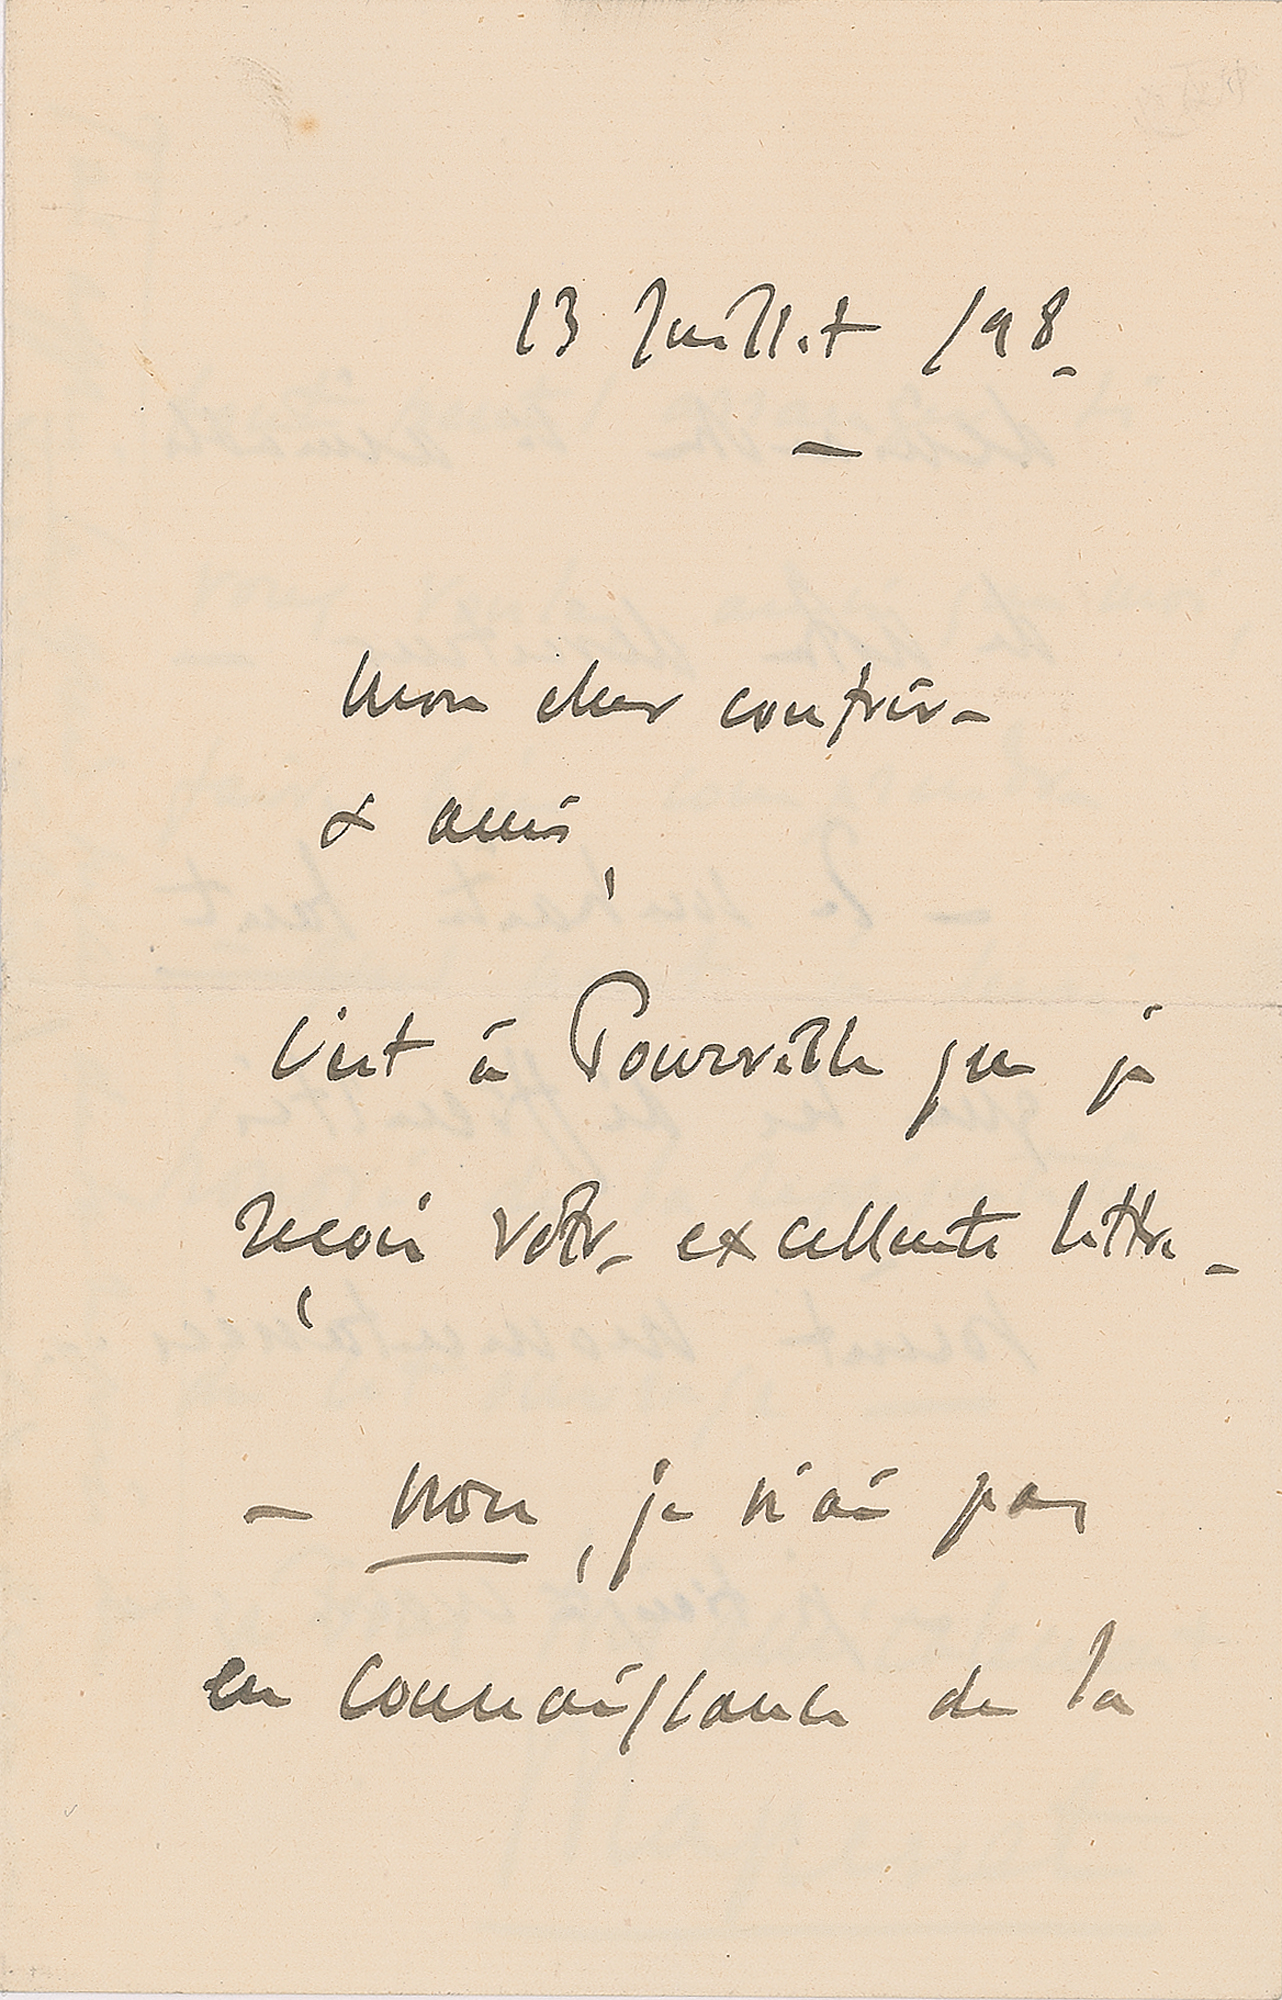 13 Juillet /98.
Mon cher confrère
& ami,
C'est à Pourville que je
reçois votre excellente lettre -
- non, je n'ai pas
eu connaissance de la